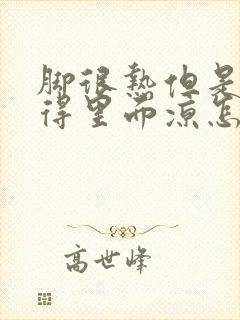 脚很热但是
得里而凉怎
高世峰